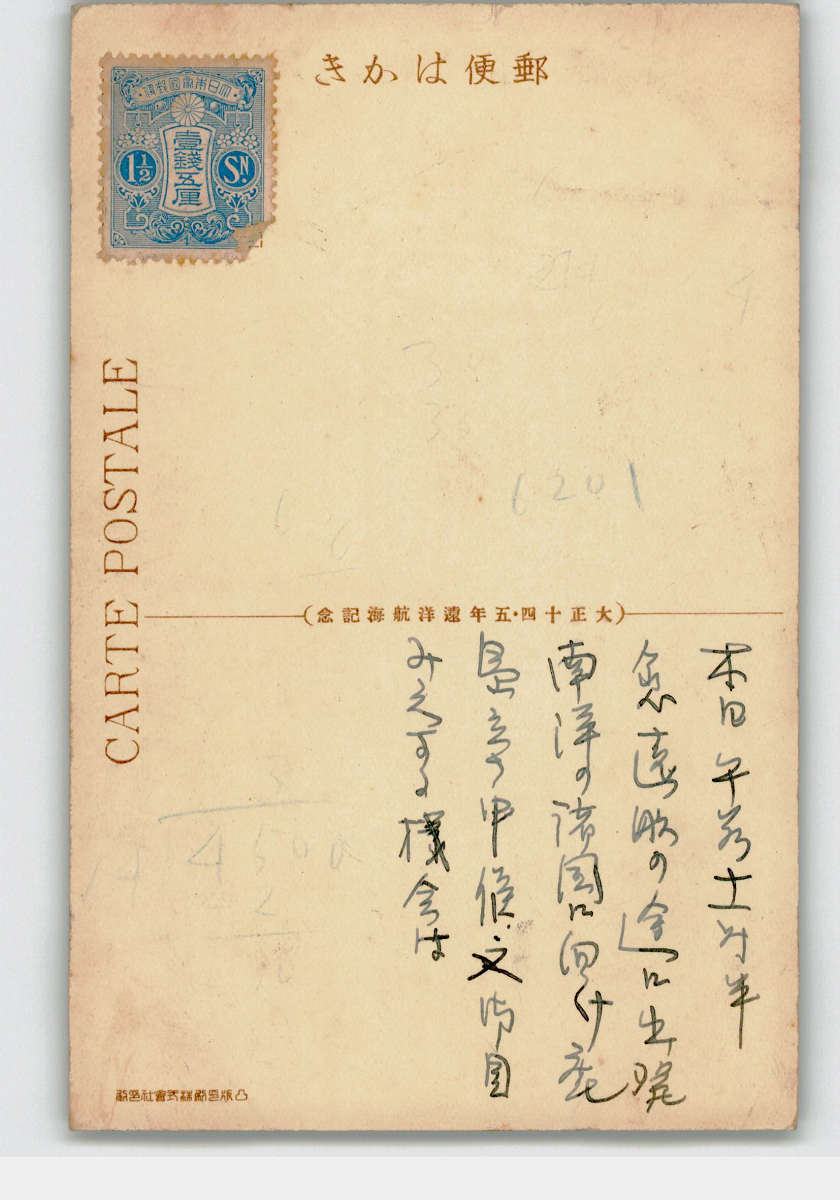 郵便はかき
大日本帝國郵便
壹錢五厘
1½ SN.
CARTE POSTALE
6201
(大正十四・五年遠洋航海記念)
本日午前十時半
愈遠航の途に出発
南洋の諸国に向け
申候、又御目
みえする機会は
4500
凸版印刷株式會社印刷